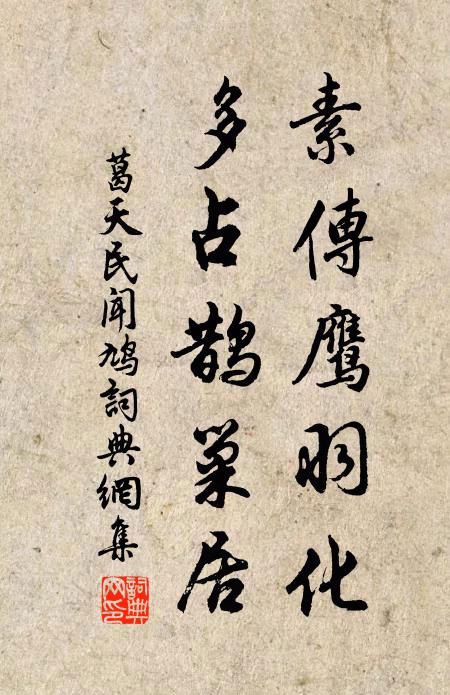 素傳鷹羽化
多占鵲巢居
葛天民聞鳩詞典網集
詞典網印